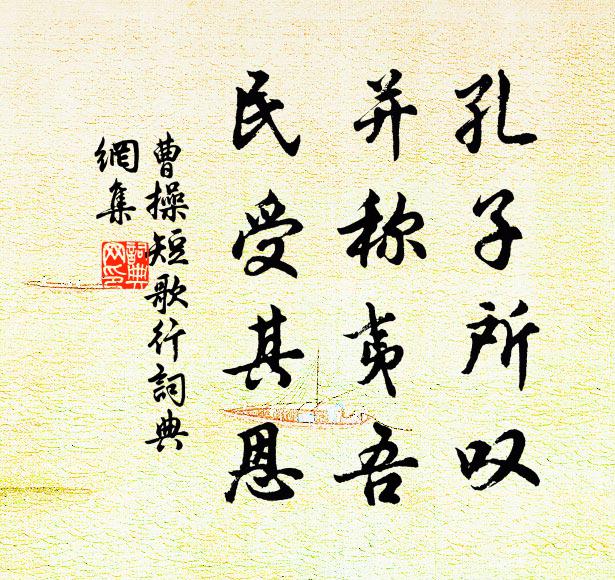 孔子所叹
并称夷吾
民受其恩
曹操短歌行詞典
網集
詞典
网印